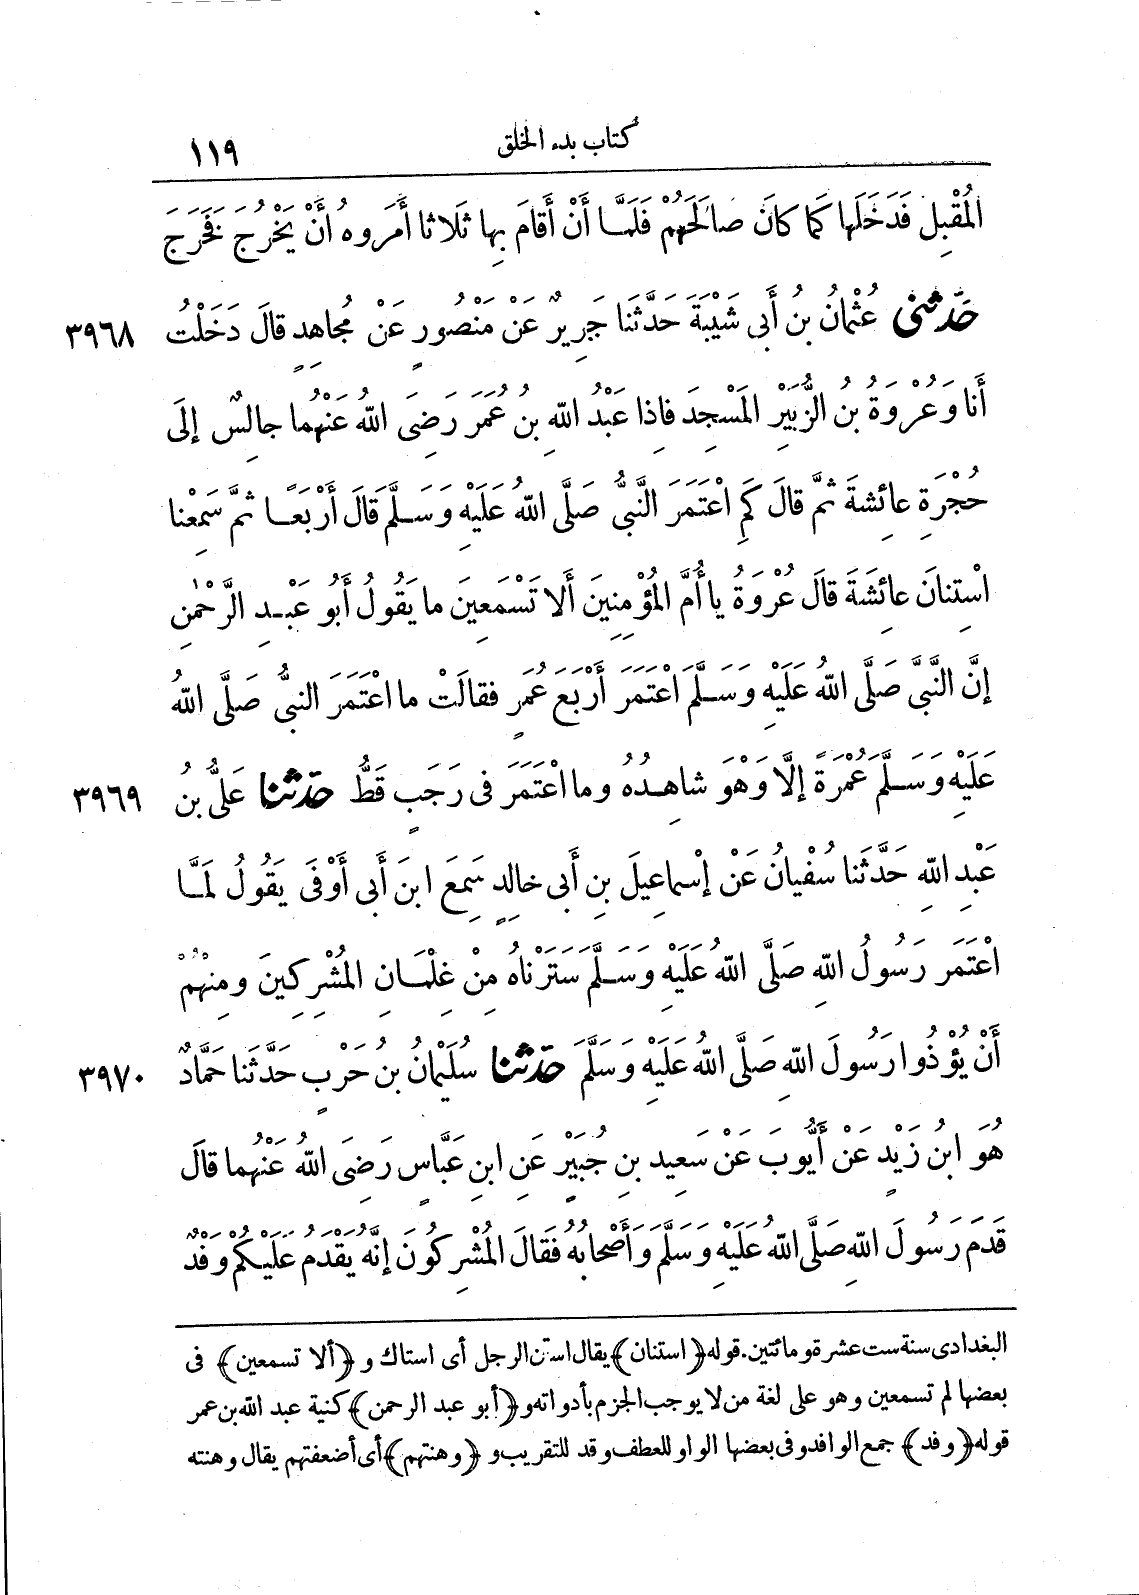 كتاب بدء الخلق ١١٩
المُقْبِلِ فَدَخَلَها كَمَا كانَ صَالَحَهُمْ فَلَمَّا أَنْ أَقامَ بِها ثَلاثا أَمَرُوهُ أَنْ يَخْرُجَ فَخَرَجَ
حَدّثنى عُثْمانُ بنُ أَبِى شَيْبَةَ حَدَّثَنا جَرِيرٌ عَنْ مَنْصُورٍ عَنْ مُجاهِدٍ قالَ دَخَلْتُ ٣٩٦٨
أَنا وَعُرْوَةُ بنُ الزُّبَيْرِ المَسْجِدَ فاذا عَبْدُ اللهِ بنُ عُمَرَ رَضِىَ اللهُ عَنْهُما جالِسٌ إلَى
حُجْرَةِ عائِشةَ ثمَّ قالَ كَمِ اعْتَمَرَ النَّبِىُّ صَلَّى اللهُ عَلَيْهِ وَسَلَّمَ قَالَ أَرْبَعًا ثمَّ سَمِعْنا
اسْتِنانَ عائِشَةَ قالَ عُرْوَةُ يا أُمَّ المُؤْمِنِينَ أَلا تَسْمَعِينَ ما يَقُولُ أَبُو عَبْدِ الرَّحْمٰنِ
إنَّ النَّبِىَّ صَلَّى اللهُ عَلَيْهِ وَسَلَّمَ اعْتَمَرَ أَرْبَعَ عُمَرٍ فقالَتْ ما اعْتَمَرَ النبىُّ صَلَّى اللهُ
عَلَيْهِ وَسَلَّمَ عُمْرَةً إلَّا وَهْوَ شاهِدُهُ وما اعْتَمَرَ فى رَجَبٍ قَطُّ حَدّثنا عَلىُّ بنُ ٣٩٦٩
عَبْدِ اللهِ حَدَّثَنا سُفْيانُ عَنْ إسْماعِيلَ بنِ أَبى خالِدٍ سَمِعَ ابنَ أَبى أَوْفَى يَقُولُ لَمَّا
اعْتَمَرَ رَسُولُ اللهِ صَلَّى اللهُ عَلَيْهِ وَسَلَّمَ سَتَرْناهُ مِنْ غِلْمَانِ المُشْرِكِينَ ومِنْهُمْ
أَنْ يُؤْذُوا رَسُولَ اللهِ صَلَّى اللهُ عَلَيْهِ وَسَلَّمَ حَدّثنا سُلَيْمانُ بنُ حَرْبٍ حَدَّثَنا حَمَّادٌ ٣٩٧٠
هُوَ ابنُ زَيْدٍ عَنْ أَيُّوبَ عَنْ سَعِيدِ بنِ جُبَيْرٍ عَنِ ابنِ عَبَّاسٍ رَضِىَ اللهُ عَنْهُما قالَ
قَدَمَ رَسُولَ اللهِ صَلَّى اللهُ عَلَيْهِ وَسَلَّمَ وَأَصْحابُهُ فَقالَ المُشْرِكُونَ إنَّهُ يَقْدَمُ عَلَيْكُمْ وَفْدٌ
البغدادى سنة ست عشرة ومائتين. قوله ﴿استنان﴾ يقال استن الرجل أى استاك و ﴿ألا تسمعين﴾ فى
بعضها لم تسمعين وهو على لغة من لا يوجب الجزم بأدواته و﴿أبو عبد الرحمن﴾ كنية عبد الله بن عمر
قوله ﴿وفد﴾ جمع الوافد وفى بعضها الواو للعطف وقد للتقريب و ﴿وهنتهم﴾ أى أضعفتهم يقال وهنته